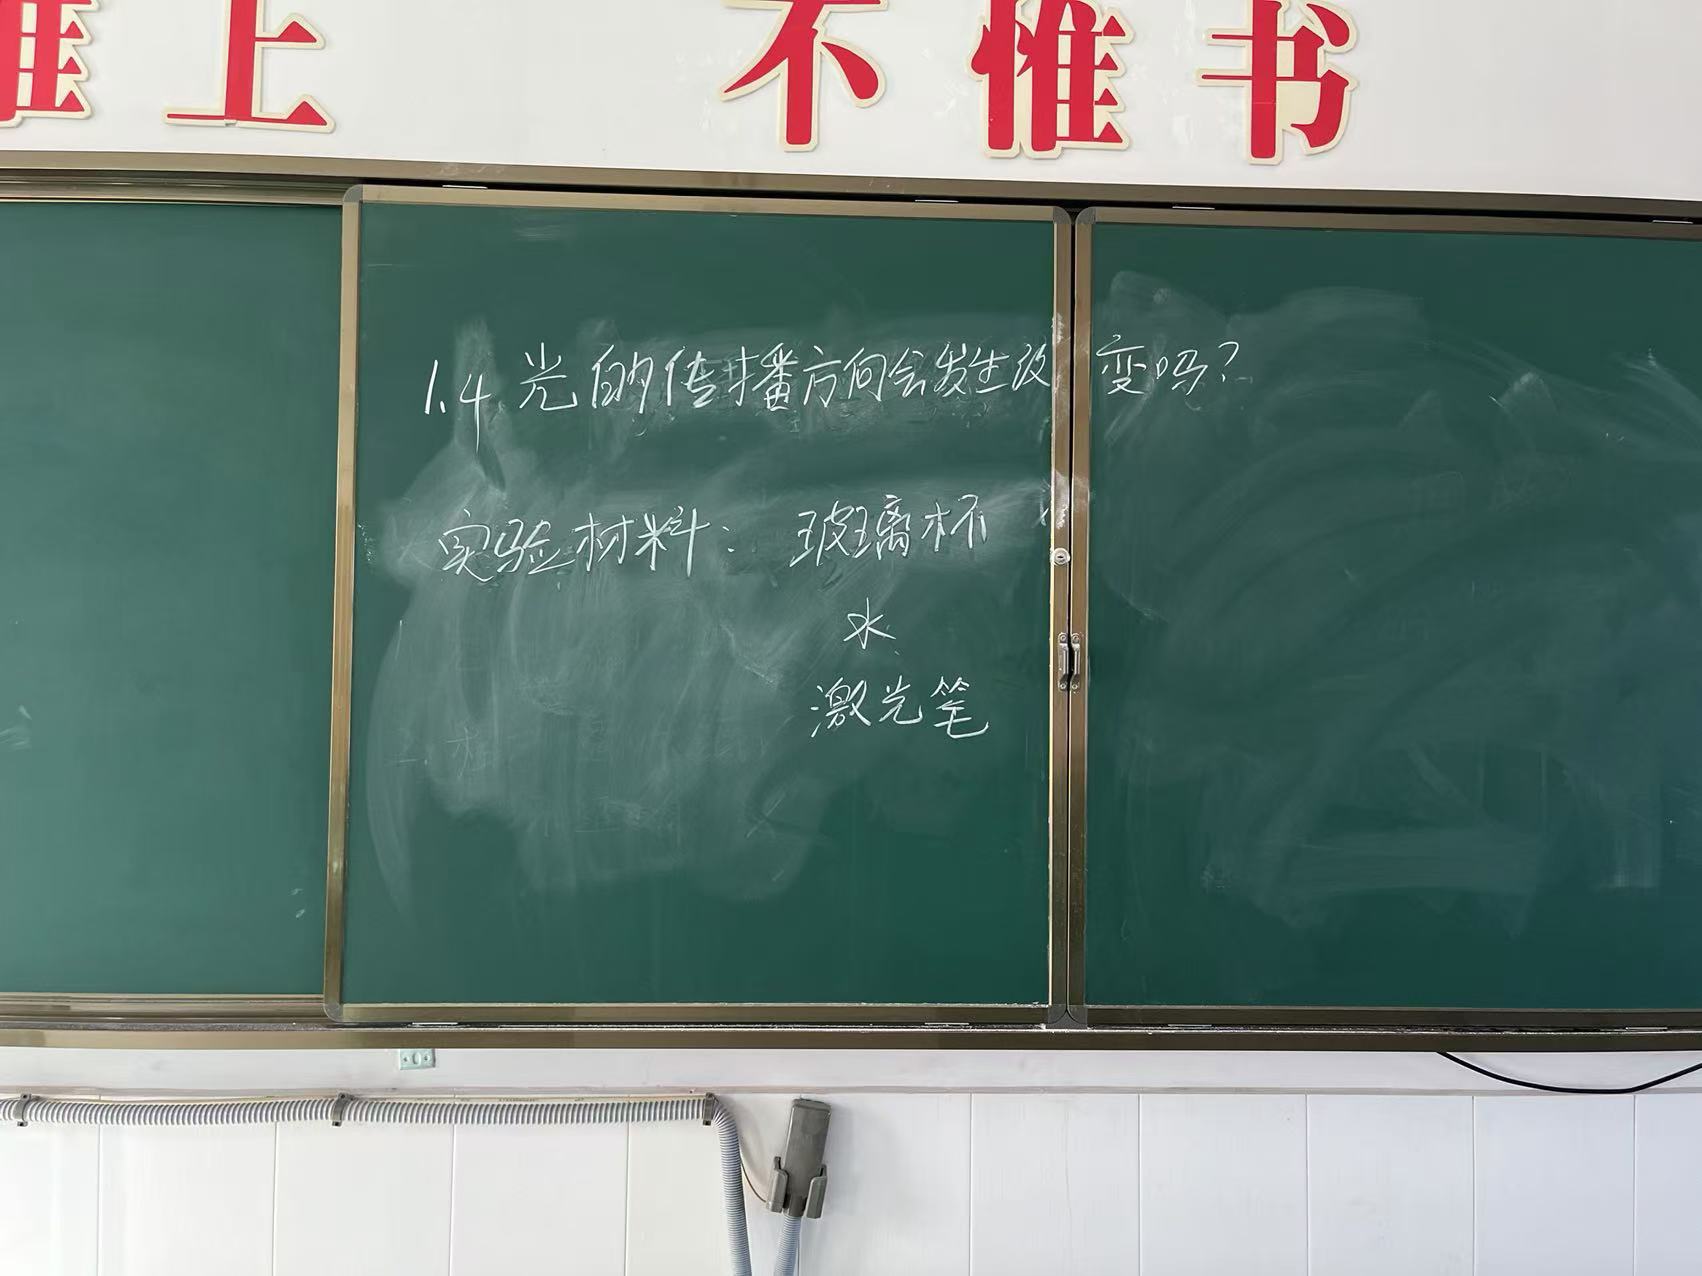 惟上 不惟书
1.4 光的传播方向会发生改变吗?
实验材料: 玻璃杯
水
激光笔